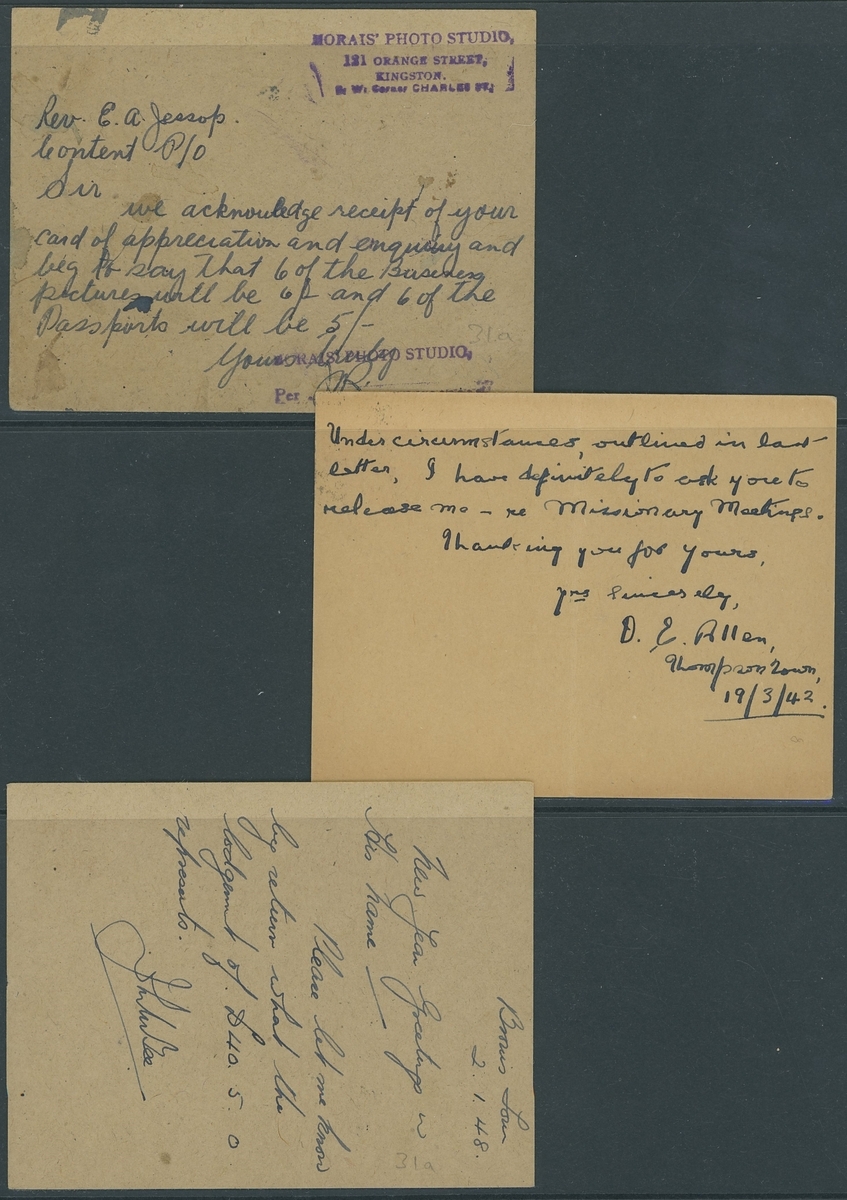 MORAIS' PHOTO STUDIO,
121 ORANGE STREET,
KINGSTON.
S. W. Corner CHARLES ST.
Rev. E. A. Jessop.
Content P/O
Sir
we acknowledge receipt of your
card of appreciation and enquiry and
beg to say that 6 of the Business
pictures will be 6/- and 6 of the
Passports will be 5/-
Yours truly
MORAIS' PHOTO STUDIO,
Per
31a
Under circumstances, outlined in last
letter, I have definitely to ask you to
release me - re Missionary Meetings.
Thanking you for yours,
yrs sincerely,
D. E. Allen,
Thompson Town,
19/3/42.
Browns Town
2. 1. 48.
New Year Greetings in
His name
Please let me know
by return what the
lodgemt of £40. 5. 0
represents.
31a